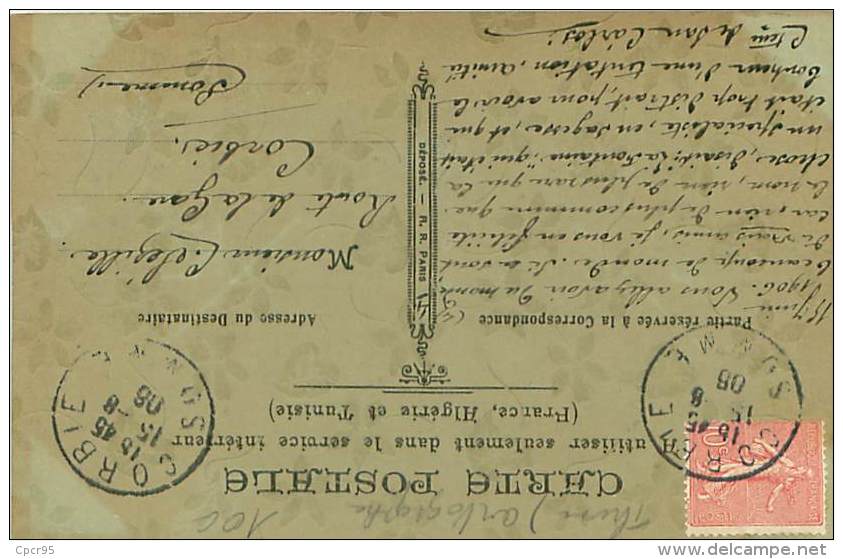 CARTE POSTALE
A utiliser seulement dans le service intérieur
(France, Algérie et Tunisie)
Partie réservée à la Correspondance
Adresse du Destinataire
15 juin
1906. Vous allez avoir du monde
beaucoup de monde. Si ce sont
de vrais amis, je vous en félicite
car, rien de plus commun que
le nom, rien de plus rare que la
chose, disait La Fontaine, qui était
un spécialiste, en sagesse, et qui
était trop distrait, pour avoir le
bonheur d'une tentation, amitié
Ctesse de San Carlos
Monsieur
Route de la Gare
Corbie.
(Somme)
DÉPOSÉ. — R. R. PARIS
CORBIE
SOMME
15 45
15-6
06
CORBIE
SOMME
15 45
15-6
06
10c
Cpcr95
www.delcampe.net